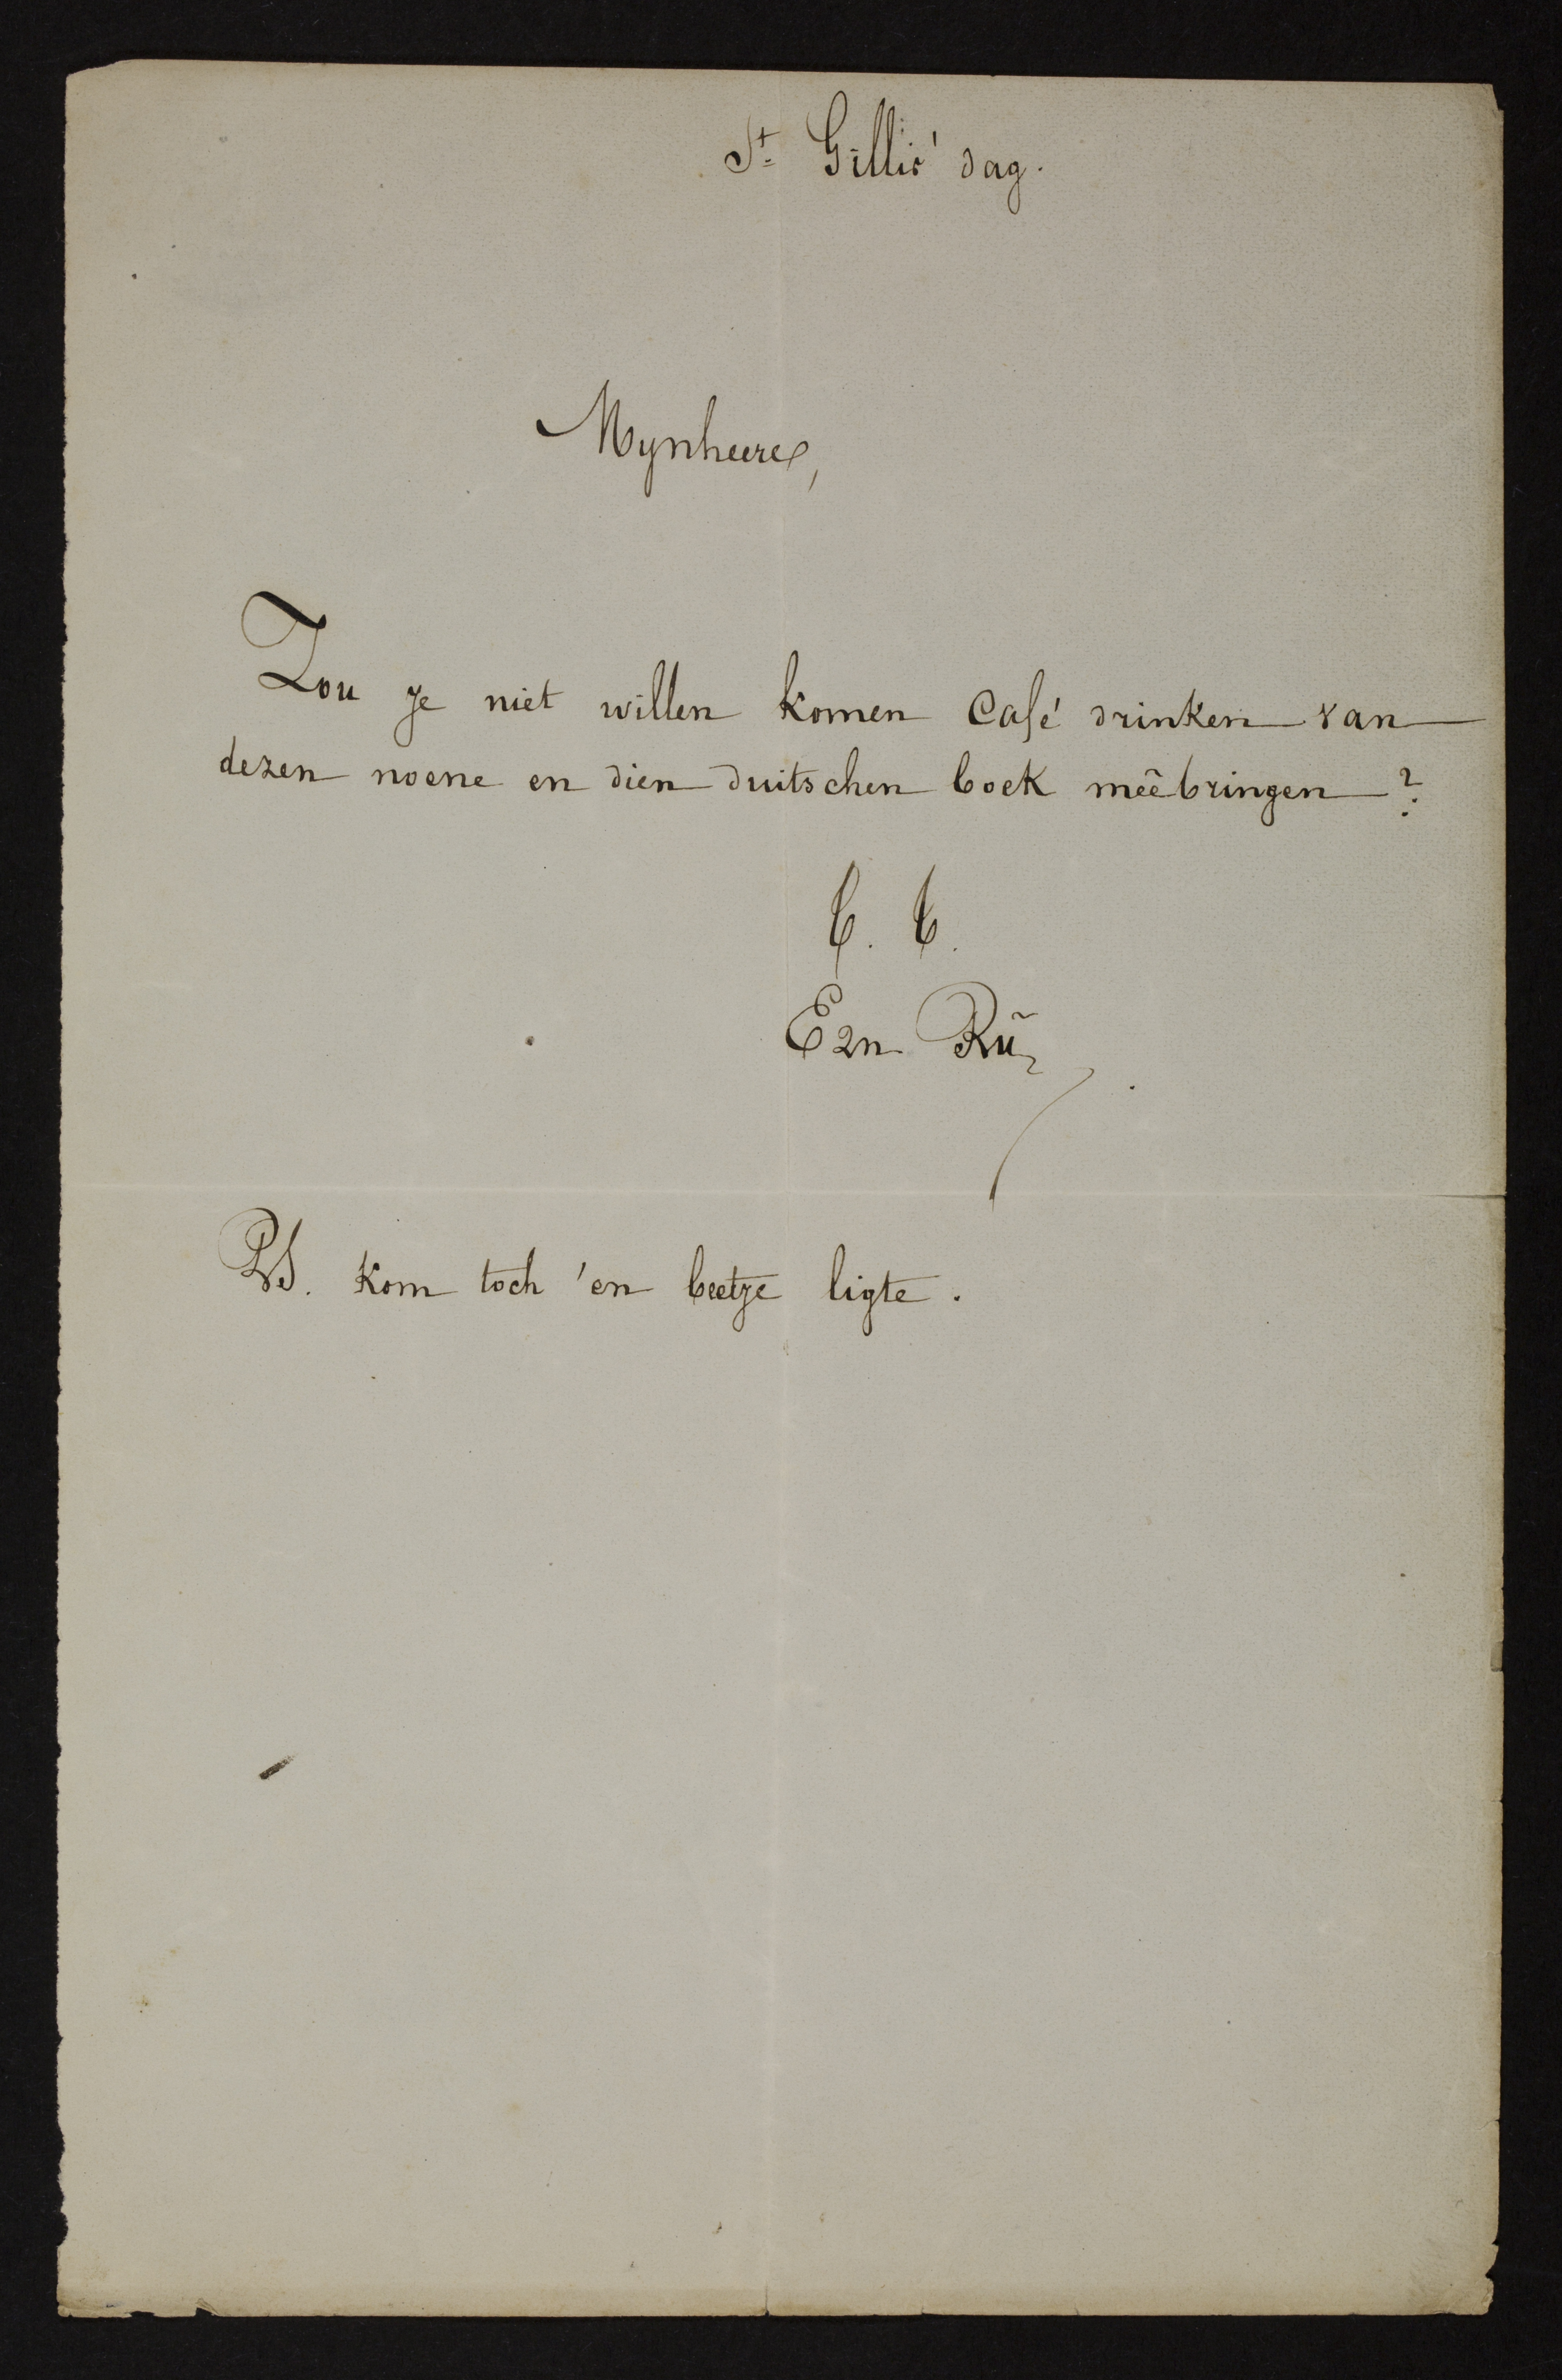 St Gillis' dag.
Mynheere,
Zou je niet willen komen Café drinken van
dezen noene en dien duitschen boek meêbringen?
t. t.
Ern Rü
PS. Kom toch 'en beetje ligte.